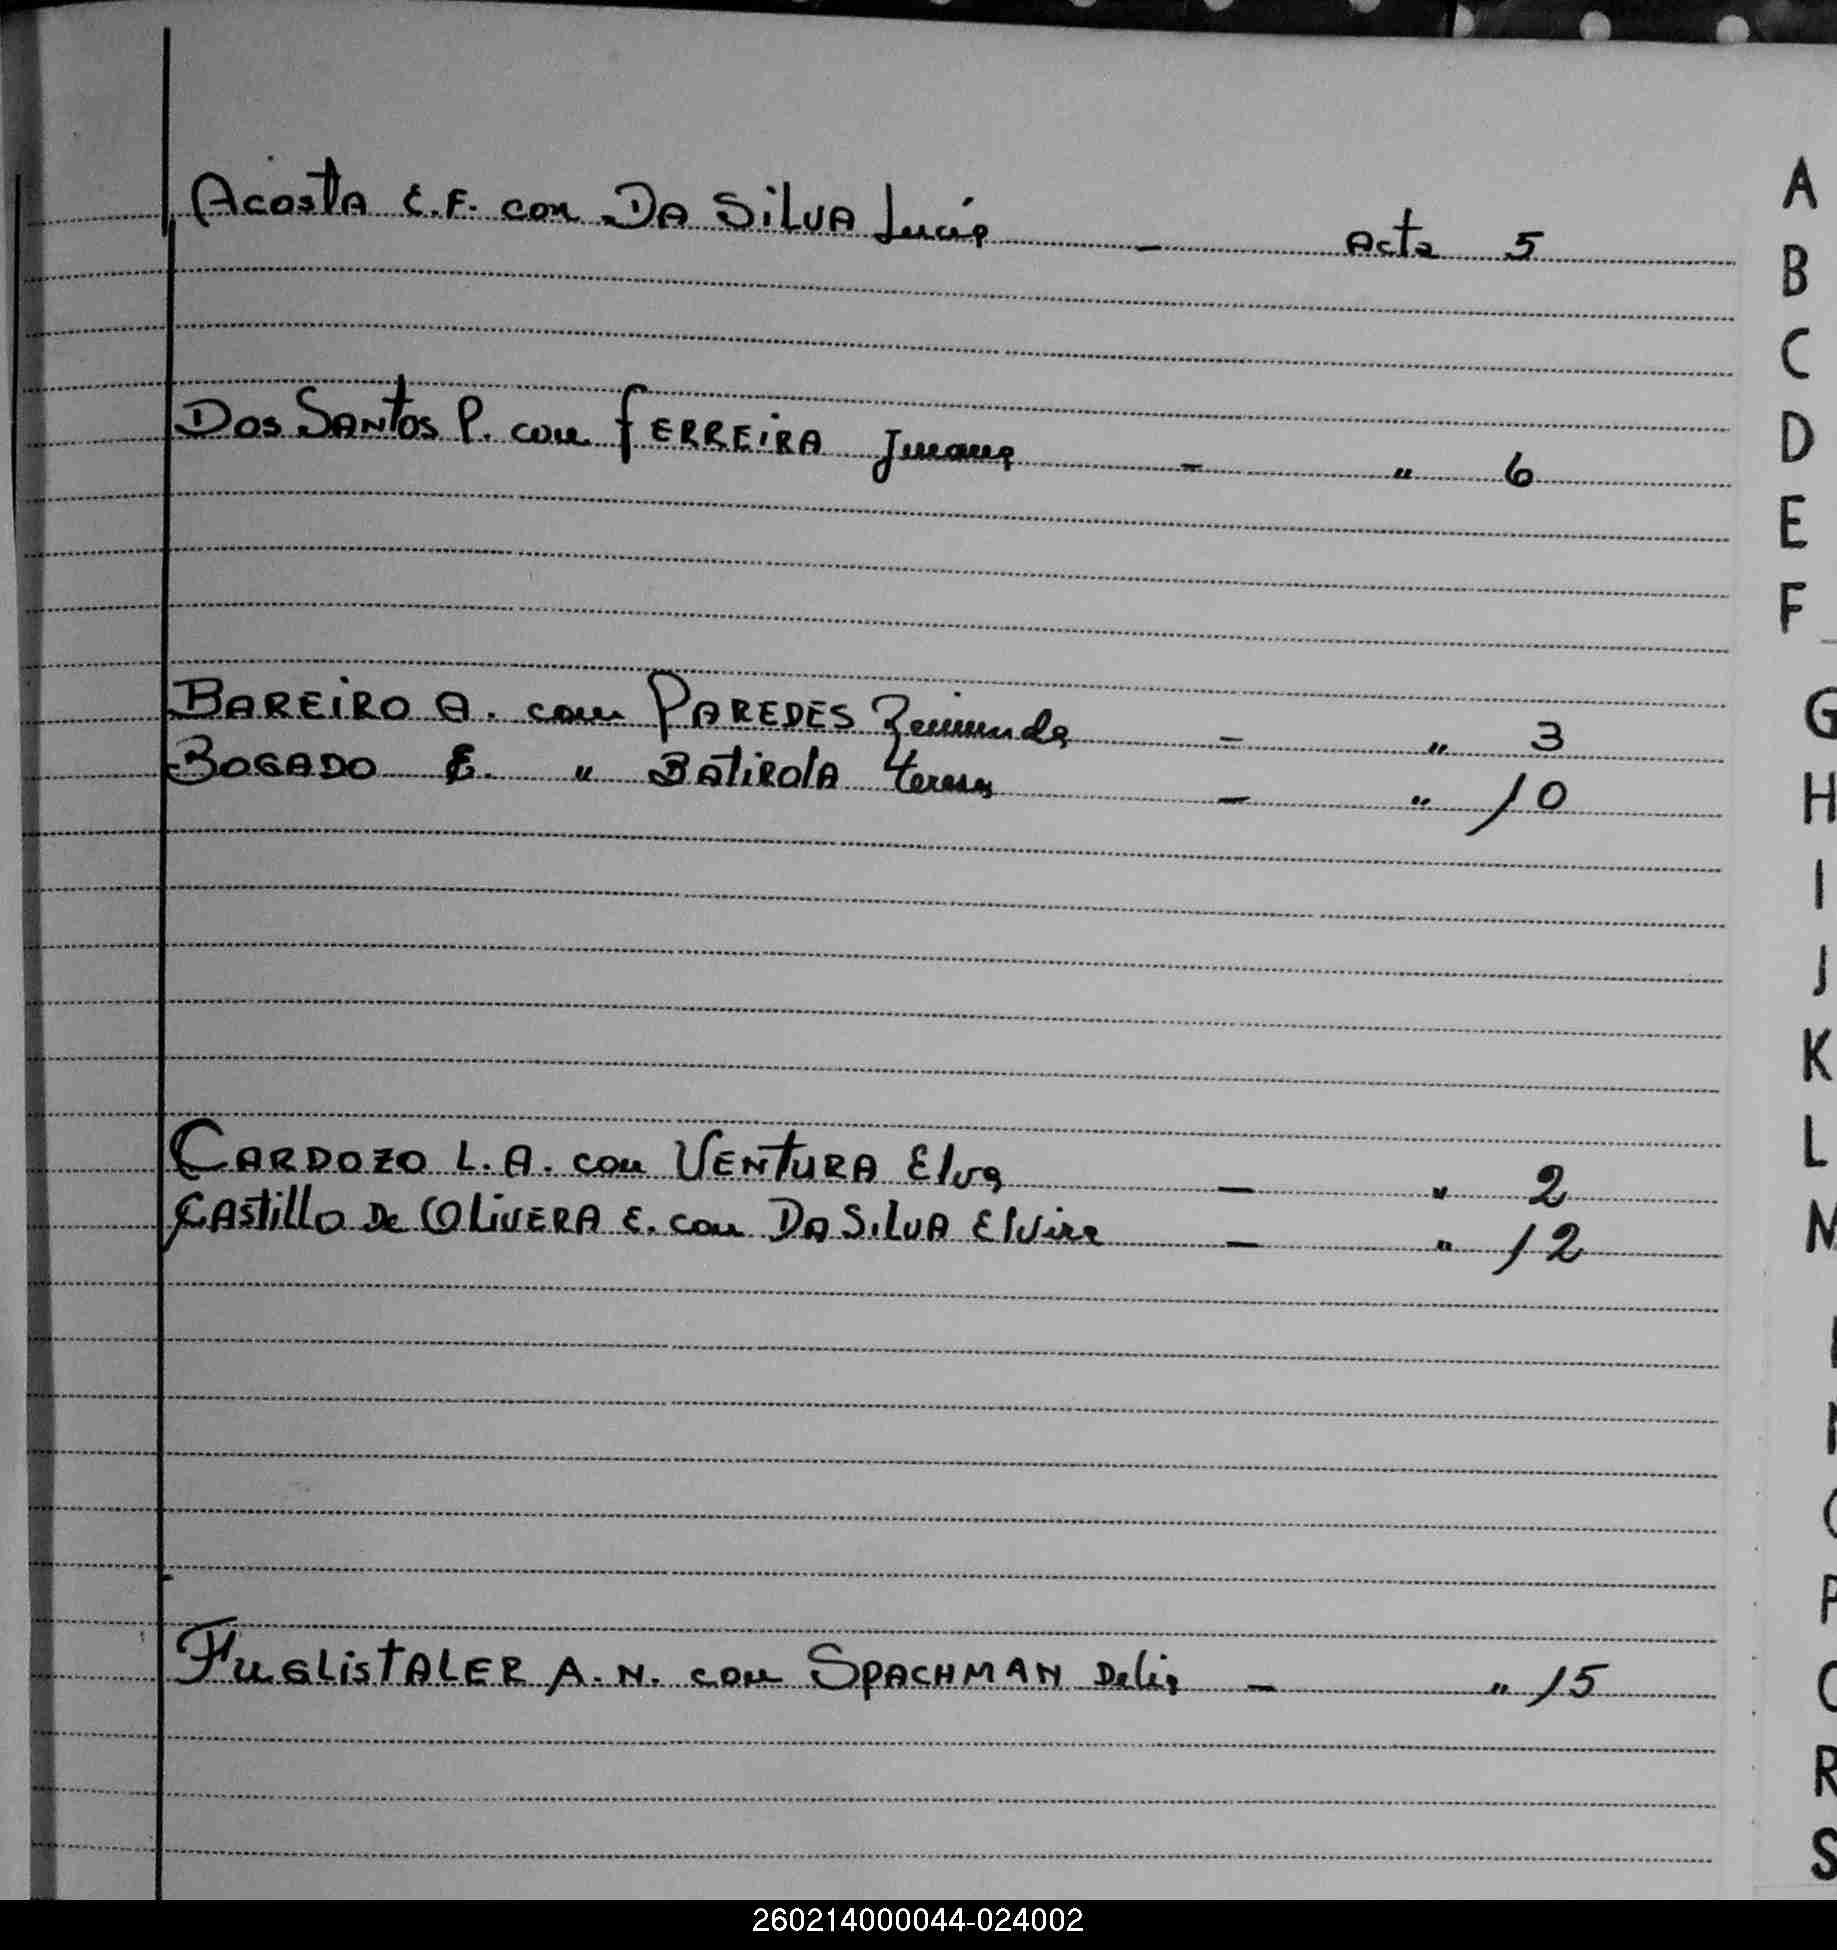 Acosta E.F. con DA SilVA Lucía - Acta 5
Dos Santos P. con FERREIRA Juana - " 6
BAREIRO A. con PAREDES - " 3
BOGADO E. " BAtiRolA teresa - " 10
CARDOZO L.A. con VENTURA Elva - " 2
CAStillo De OliVERA E. con DA SilVA Elvira - " 12
FuGlisTALER A.N. con SPACHMAN Delia - " 15
A
B
C
D
E
F
G
H
I
J
K
L
M
P
R
S
260214000044-024002